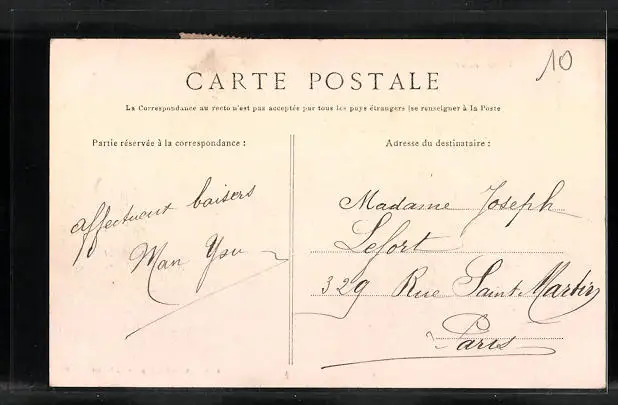 10
CARTE POSTALE
La Correspondance au recto n'est pas acceptée par tous les pays étrangers (se renseigner à la Poste
Partie réservée à la correspondance :
affectueut baisers
Man
Adresse du destinataire :
Madame Joseph
Lefort
329 Rue Saint-Martin
Paris